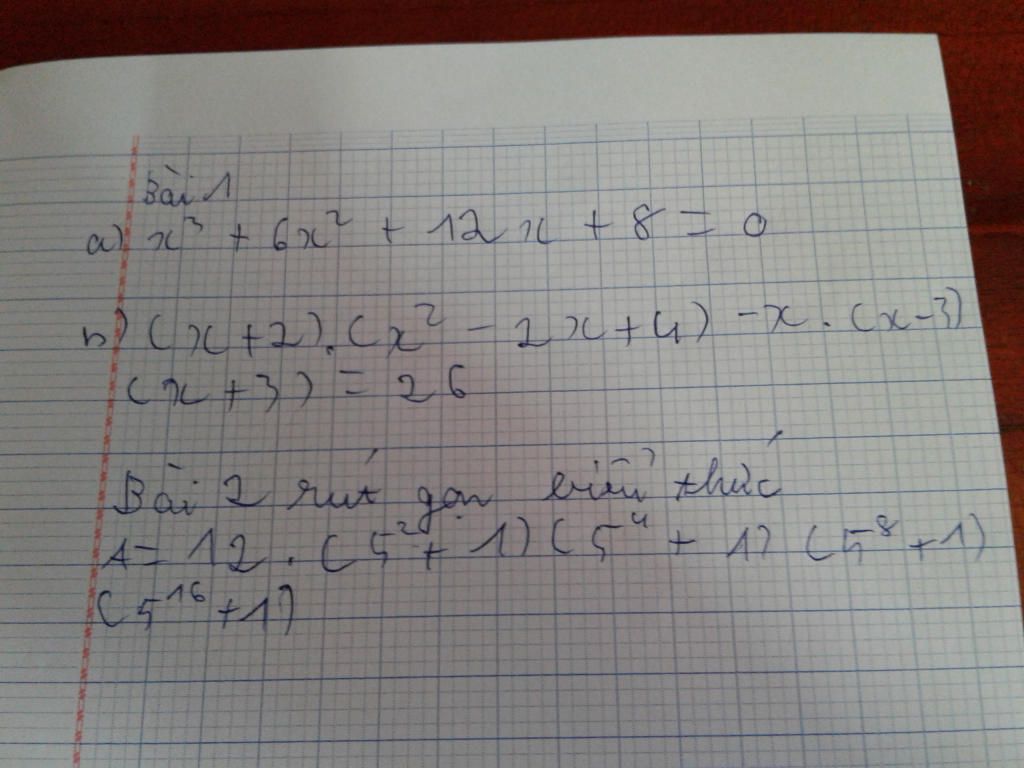 Bài 1
a) x³ + 6x² + 12x + 8 = 0
b) (x+2).(x² - 2x+4) - x.(x-3)
(x+3) = 26
Bài 2 rút gọn biểu thức
A = 12.(5²+1)(5⁴+1)(5⁸+1)
(5¹⁶+1)